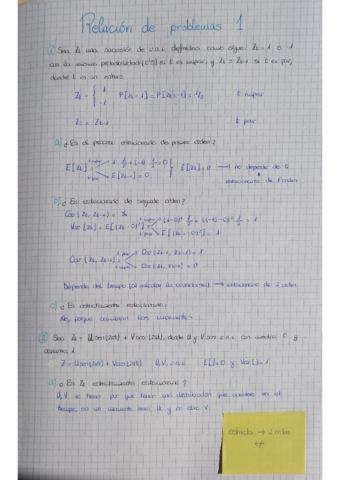 Relación de problemas 1
① Sea Zt una sucesión de v.a.i. definidas como sigue: Zt = 1 ó -1
con la misma probabilidad (0'5) si t es impar, y Zt = Zt-1 si t es par,
donde t es un entero.
Zt = { 1 P[Zt = 1] = P[Zt = -1] = 1/2 t impar
-1
Zt = Zt-1 t par
a) ¿Es el proceso estacionario de primer orden?
E[Zt] 1 · 1/2 + (-1) · 1/2 = 0 E[Zt] = 0 → no depende de t
E[Zt-1] = 0 estacionario de 1 orden
b) ¿Es estacionario de segundo orden?
Cov(Zt, Zt-k) = γk
Var[Zt] = E[(Zt - 0)²] (1-0)² · 1/2 + (-1-0)² · 1/2 = 1
E[(Zt-1 - 0)²] = 1
Cov(Zt, Zt-1) = 1
Cov = 0
Depende del tiempo (al calcular la covarianza) → estacionario de 2 orden
c) ¿Es estrictamente estacionario?
No, porque
② Sea Zt = U sen(2πt) + V cos(2πt), donde U y V son v.a.i. con media 0 y
varianza 1.
Z = U sen(2πt) + V cos(2πt) U, V, v.a.i. E[ ] = 0 y Var[ ] = 1
a) ¿Es Zt estrictamente estacionario?
U, V no tienen por qué tener una distribución que
tiempo, en un momento será U y en otro V.
estricto → 2 orden